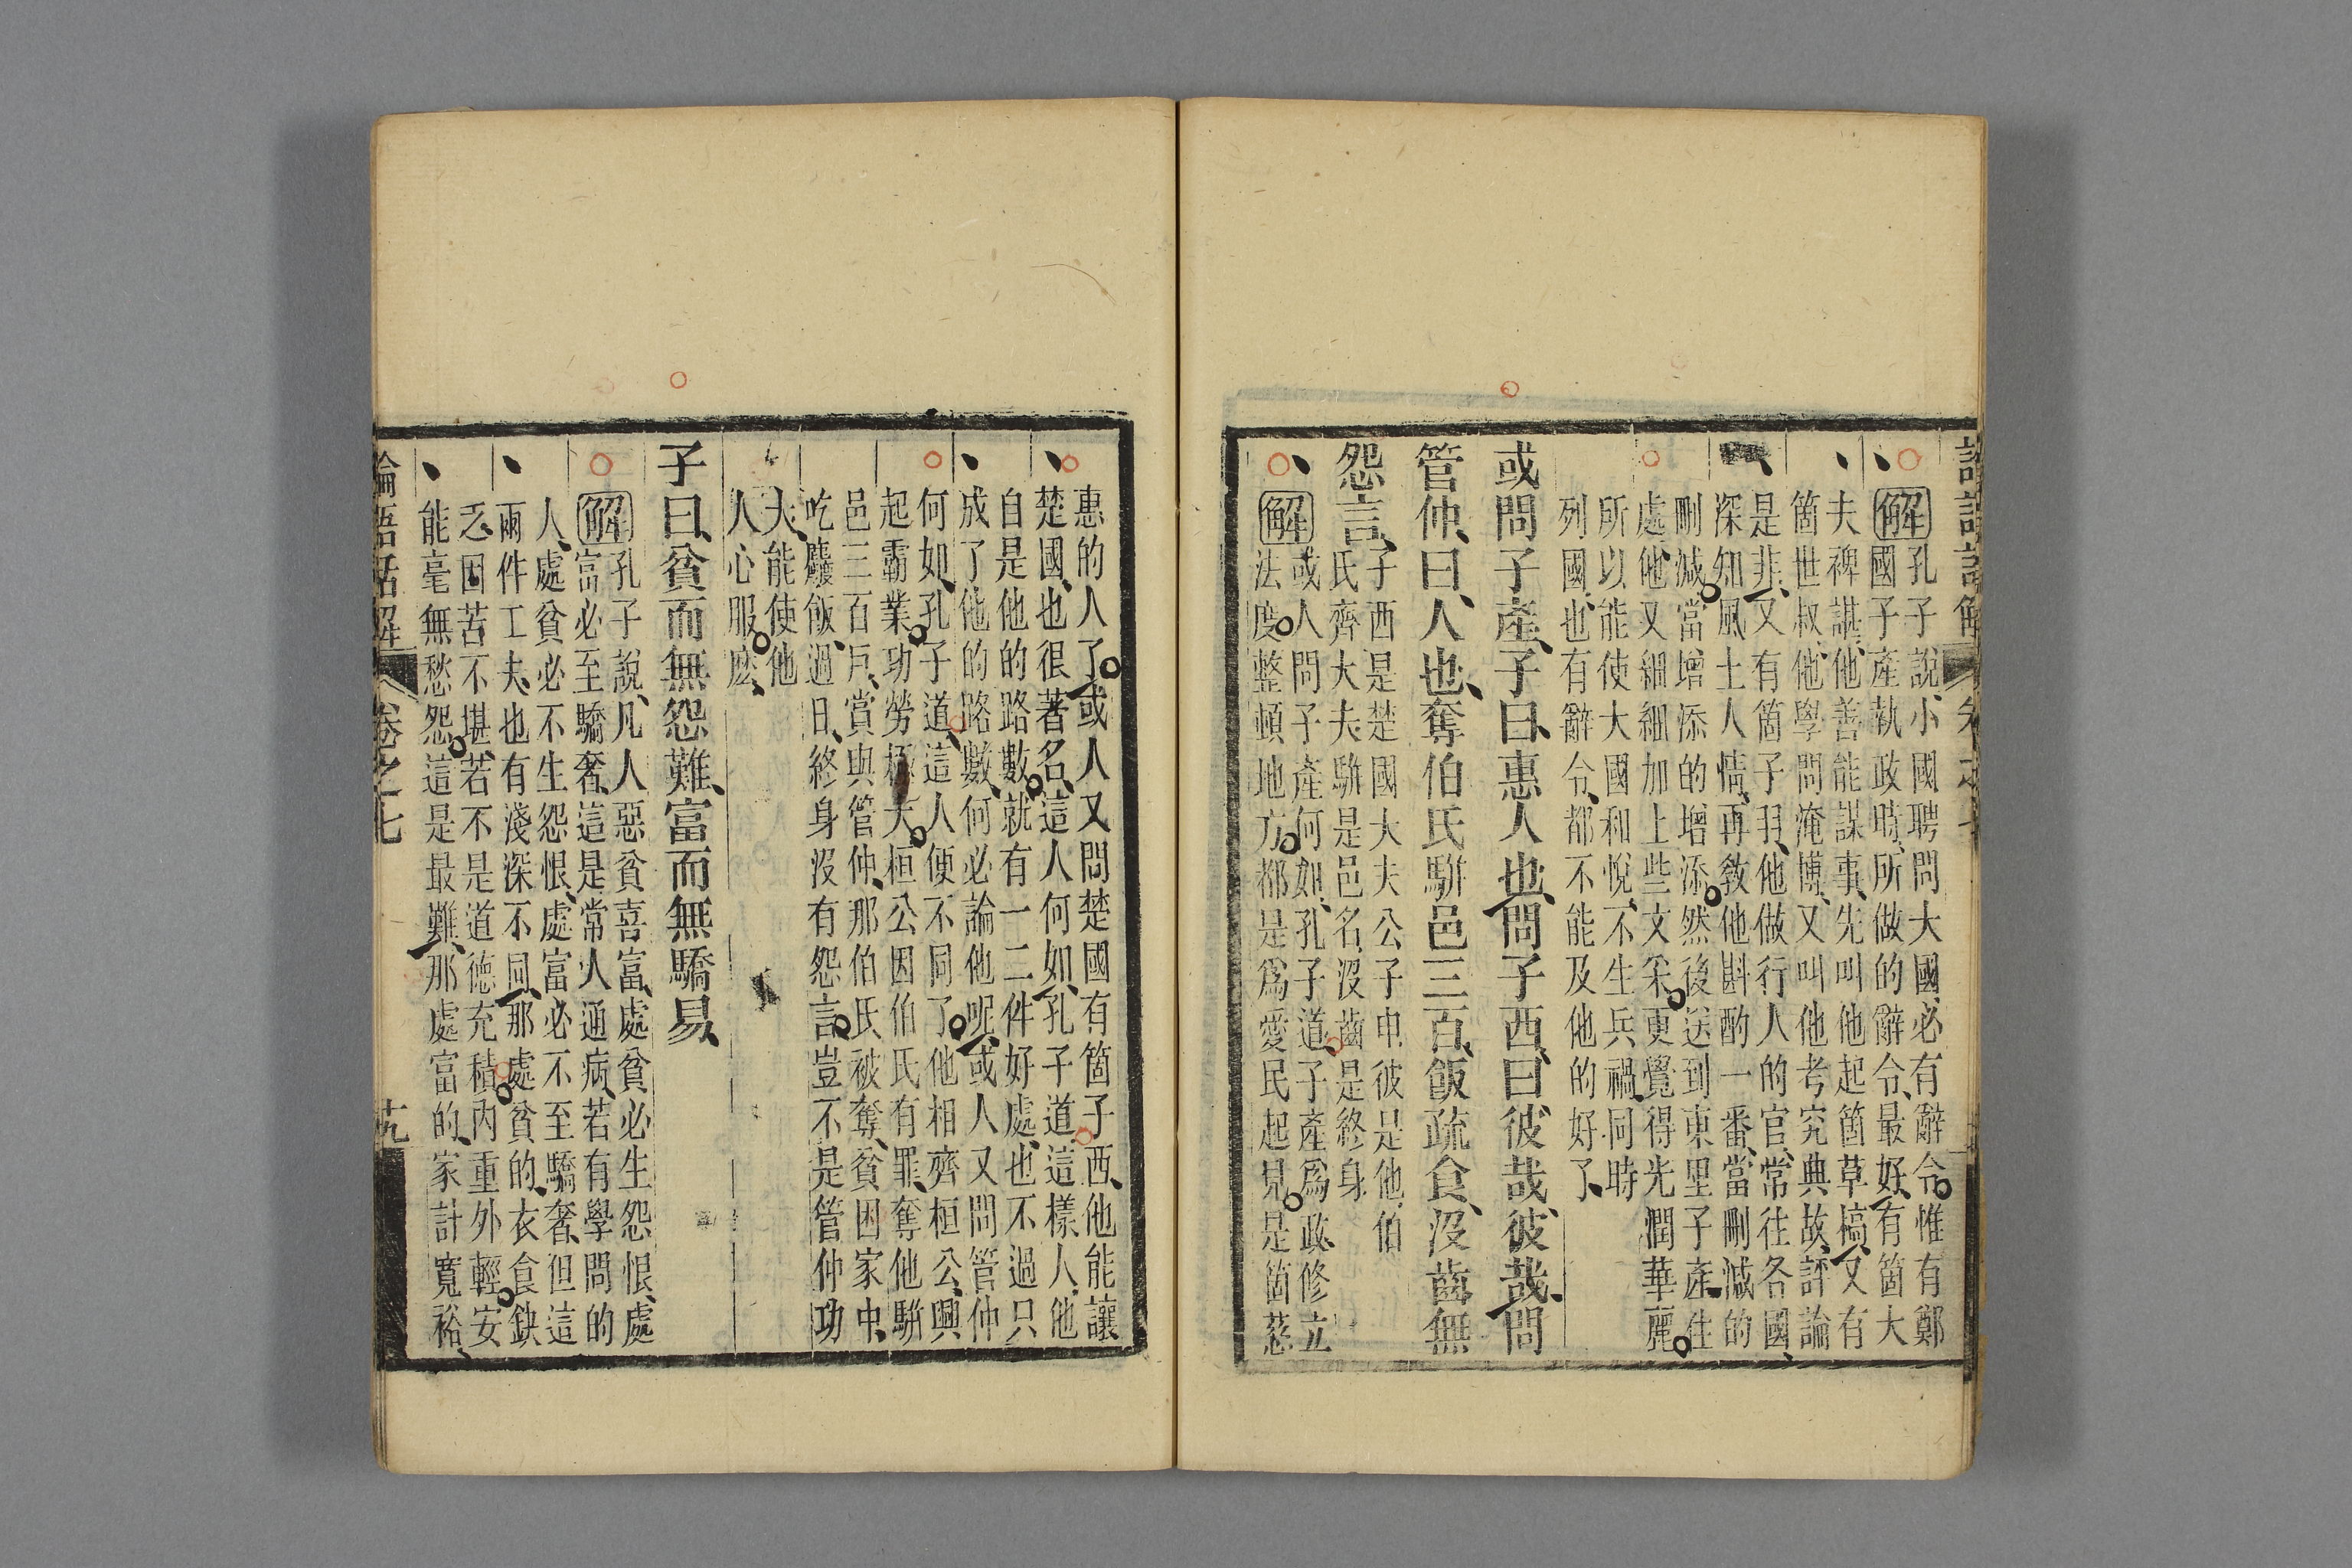 解孔子說、小國聘問大國、必有辭令。惟有鄭
國子產執政時、所做的辭令、最好、有箇大
夫裨諶、他善能謀事、先叫他起箇草槁、又有
箇世叔、他學問淹博、又叫他考究典故、評論
是非、又有箇子羽、他做行人的官、常往各國、
深知風土人情、再敎他斟酌一番、當刪減的
刪減。當增添的增添。然後送到東里子產住
處、他又細細加上些文采。更覺得光潤華麗。
所以能使大國和悅、不生兵禍、同時
列國、也有辭令、都不能及他的好了、
或問子產、子曰、惠人也、問子西、曰、彼哉、彼哉、問
管仲、曰、人也、奪伯氏駢邑三百、飯疏食、沒齒無
怨言、
子西是楚國大夫公子申、彼是他、伯
氏齊大夫、駢是邑名、沒齒是終身
解或人問子產何如、孔子道、子產爲政、修立
法度。整頓地方。都是爲愛民起見。是箇慈
惠的人了。或人又問楚國有箇子西、他能讓
楚國、也很著名、這人何如、孔子道、這樣人、他
自是他的路數。就有一二件好處、也不過只
成了他的路數、何必論他呢、或人又問管仲
何如、孔子道、這人便不同了。他相齊桓公、興
起霸業。功勞極大。桓公因伯氏有罪、奪他駢
邑三百戶、賞與管仲、那伯氏被奪、貧困家中、
吃麤飯、過日、終身沒有怨言。豈不是管仲功
大、能使他
人心服。麽、
子曰、貧而無怨難、富而無驕易、
解孔子說、凡人惡貧喜富、處貧必生怨恨、處
富必至驕奢、這是常人通病、若有學問的
人、處貧必不生怨恨、處富必不至驕奢、但這
兩件工夫、也有淺深不同、那處貧的、衣食缺
乏、困苦不堪、若不是道德充積。內重外輕。安
能毫無愁怨。這是最難、那處富的、家計寬裕、
論語話解
卷之七
十九